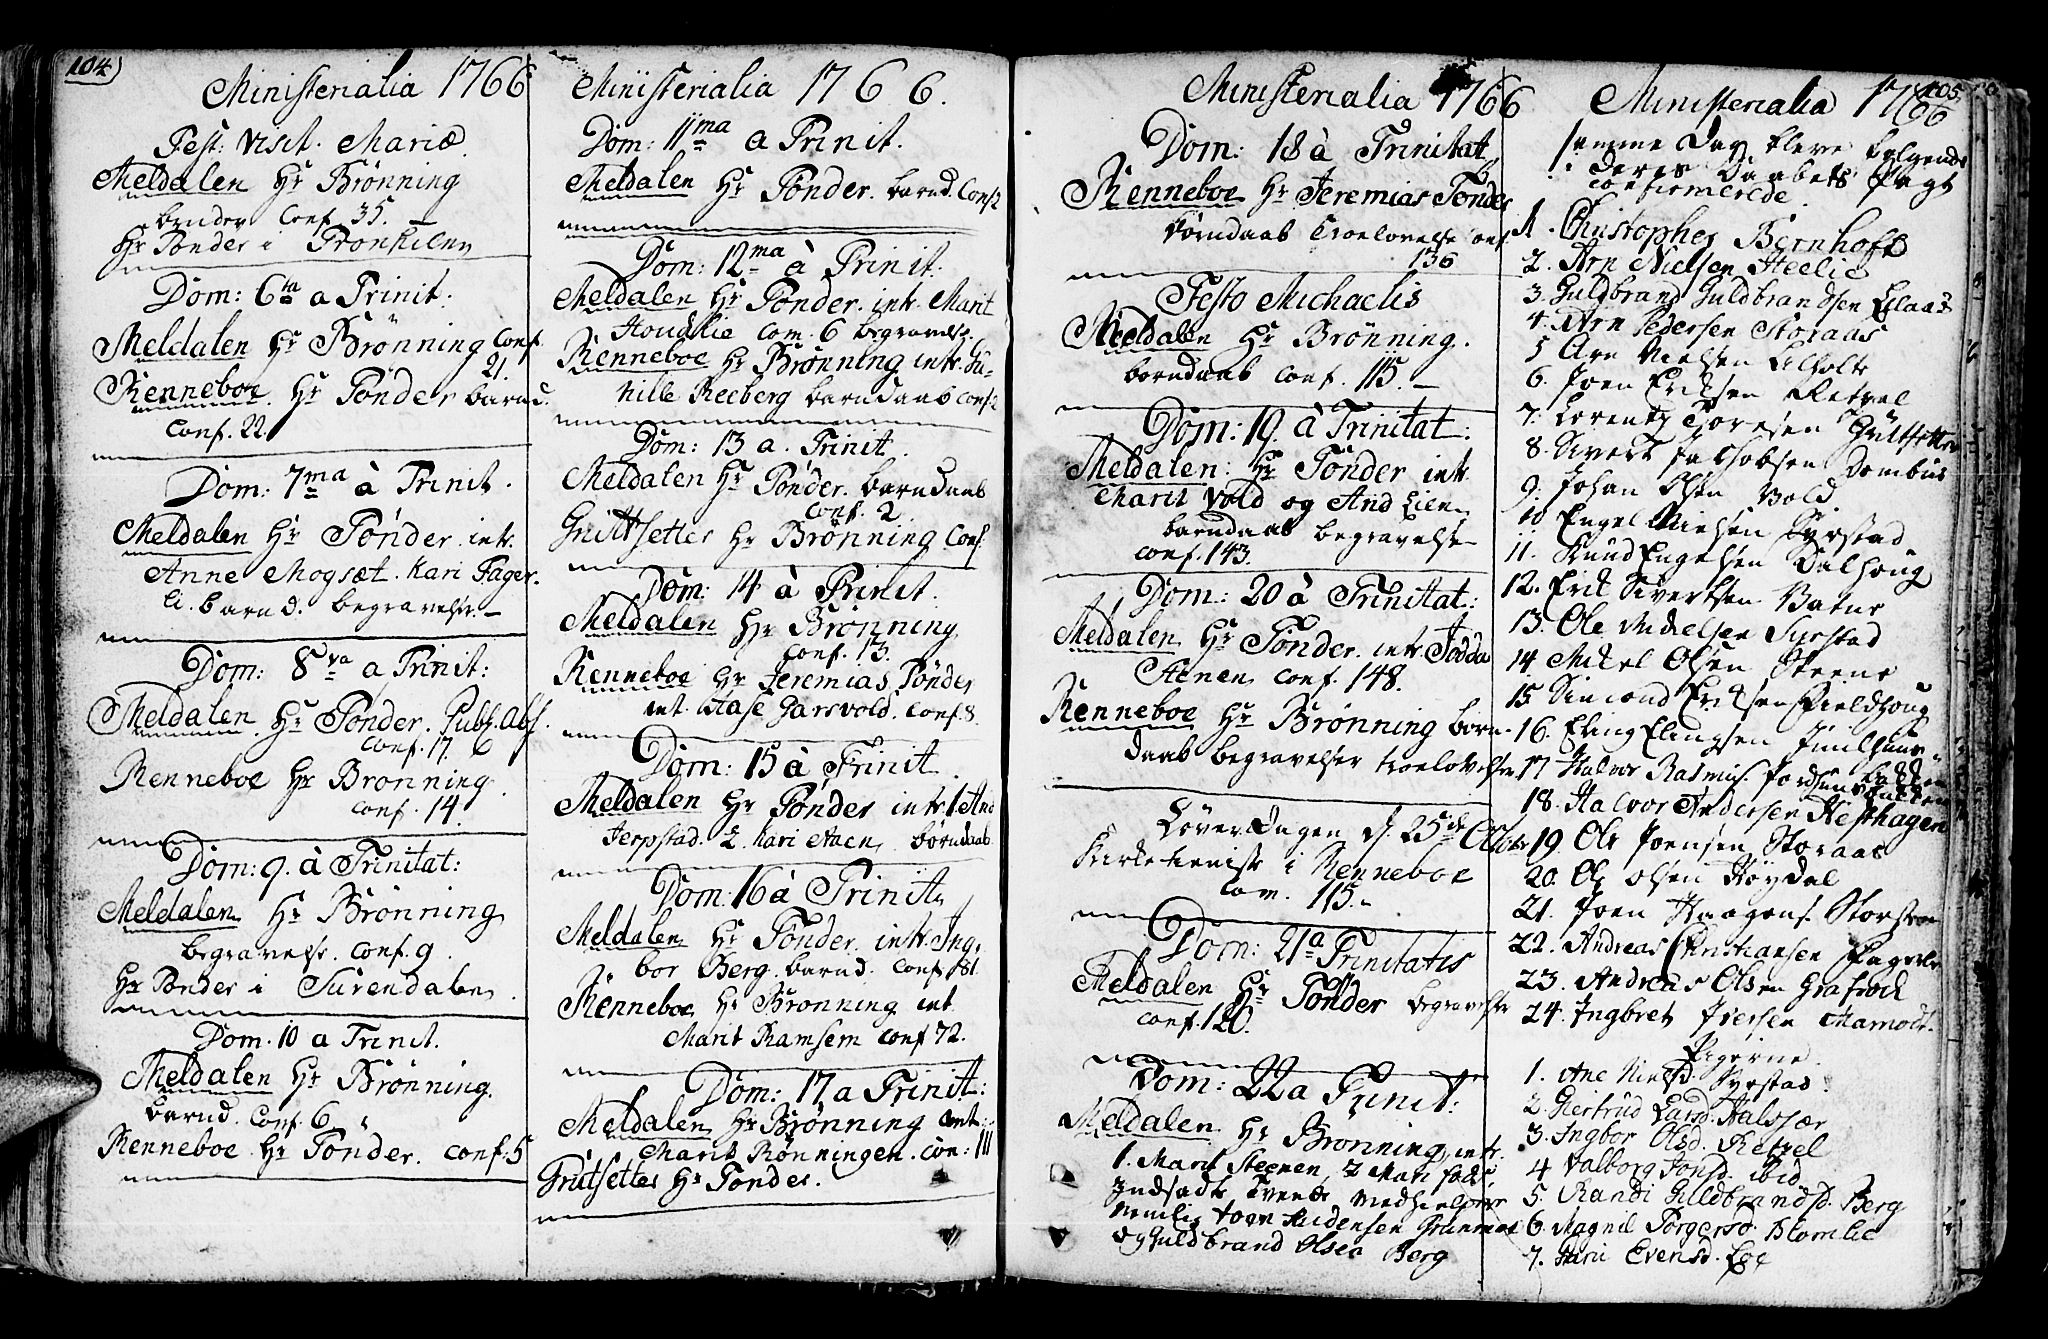 104)
Ministerialia 1766
Fest: Visit. Mariæ
Meldalen Hr Brønning
Conf. 35.
Hr Tønder i
Dom: 6ta a Trinit:
Meldalen Hr Brønning Conf.
21.
Renneboe Hr Tønder barnd.
Conf. 22.
Dom: 7ma à Trinit.
Meldalen Hr Tønder. intr.
Anne Mogset. Kari Fager-
li. barnd. begravelse. —
Dom: 8va a Trinit:
Meldalen Hr Tønder. Publ. Abs.
Conf. 17. 6
Renneboe Hr Brønning.
Conf. 14.
Dom: 9. à Trinitat:
Meldalen Hr Brønning
begravelse. Conf. 9.
Hr Tønder i Surendalen.
Dom. 10 a Trinit.
Meldalen Hr Brønning.
barnd. Conf. 6
Renneboe Hr Tønder. Conf: 5
Miisterialia 1766.
Dom: 11ma a Trinit.
Meldalen Hr Tønder. barnd. Conf. 2
Dom: 12ma à Trinit:
Meldalen Hr Tønder. intr. Marit
Houglie Com. 6 begravelse.
Renneboe Hr Brønning intr. Gu-
nille Reeberg barndaab Conf. 2
Dom: 13 a. Trinit.
Meldalen Hr Tønder. barndaab
Conf. 2
Gruttsetter Hr Brønning Conf.
Dom: 14 à Trinit.
Meldalen Hr Brønning
Conf. 13.
Renneboe Hr Jeremias Tønder
int. Aase Garsvold. Conf. 8.
Dom: 15 à Trinit.
Meldalen Hr Tønder intr. 1. And
Jerpstad. 2. Kari Aaen, børndaab
Dom. 16 à Trinit.
Meldalen Hr Tønder. intr. Ing-
bor Berg. barnd. Conf. 81.
Renneboe Hr Brønning int.
Marit Ramsem Conf 72.
Dom: 17 a Trinit:
Meldalen Hr Brønning int:
Marit Rønningen. Con: 111
Grutsetter Hr Tønder.
Ministerialia 1766
Dom: 18 à Trinitat.
Renneboe Hr Jeremias Tønder
børndaab Troelovelse Conf.
136
Festo Michaelis
Meldalen Hr Brønning.
børndaab Conf. 115. —
Dom: 19. à Trinitat:
Meldalen: Hr Tønder intr.
Marit Vold og And Lien,
barndaab begravelse
Conf. 143.
Dom: 20 à Trinitat:
Meldalen Hr Tønder. intr.
Conf. 148.
Renneboe Hr Brønning børn-
daab begravelser troelovelse
Løverdagen d. 25de Octobr
i Renneboe
Com. 115. -
Dom: 21 a Trinitatis
Meldalen Hr Tønder begravelse
Conf. 120.
Dom: 22 a Trinit:
Meldalen Hr Brønning, intr.
1. Marit Steenen, 2 Mari
Indsadt Tvende Medhielpere
nemlig
og Guldbrand Olsen Berg
105.
Ministerialia 1766
samme Dag bleve følgende
deres Daabes Pagt
confirmerede.
1. Christopher Bernhoft
2. Arn Nielsen Heelie
3. Guldbrand Guldbrandsen
4. Arn Pedersen Storaas
5 Arn Nielsen
6. Joen Eriksen Retzel
7. Lorentz
8. Sivert Jachobsen Dombus
9. Johan Olsen Vold
10 Engel Nielsen Syrstad
11. Knud Engelsen Dalhoug
12. Erik Sivertsen
13. Ole Mikelsen Syrstad
14. Mikel Olsen Steene
15 Simond Eriksen Fieldhoug
16. Eling Elingsen
17 Halvor Rasmus.
18. Halvor Andersen Hesthagen
19. Ole Joensen Storaas
20. Ole Olsen Høydal
21. Joen Haagens.
22. Andreas Christiansen Fagerli
23. Andreas Olsen
24. Ingbret Iversen
Pigerne
1. Ane Nielsd. Syrstad.
2. Giertrud
3. Ingbor Olsd. Retzel
4 Valborg Jonsd. ibid
5. Randi Guldbrandsd. Berg
6. Magnil Torgersd. Blomlie
7. Evensd.